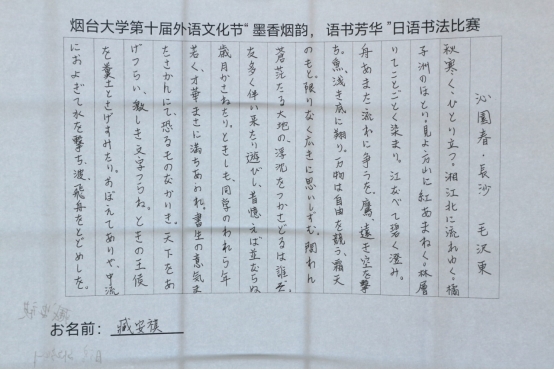 烟台大学第十届外语文化节“墨香烟韵，语书芳华”日语书法比赛
沁園春・長沙　毛沢東
秋寒く、ひとり立つ。湘江北に流れゆく。橘
子洲のほとり。見よ万山に紅あまねく。林層
りてことごとく染まり。江なべて碧く澄み。
舟あまた流れに争うを。鷹、遠き空を撃
ち。魚、浅き底に翔り。万物は自由を競う、霜天
のもと。限りなく広きに思いしずむ。問わん
蒼茫たる大地の、浮沈をつかさどるは誰ぞ。
友多く伴い来たり遊びし。昔憶えば並ならぬ
歳月かさねたり。ときしも、同学のわれら年
若く。才華まさに満ちあふれ。書生の意気ま
たさかんにて恐るものなかりき。天下をあ
げつらい、激しき文字つらね。ときの王侯
を糞土とさげすみたり。おぼえてありや、中流
におよぎて水を撃ち、波、飛舟をとどめしを。
お名前：臧安祺